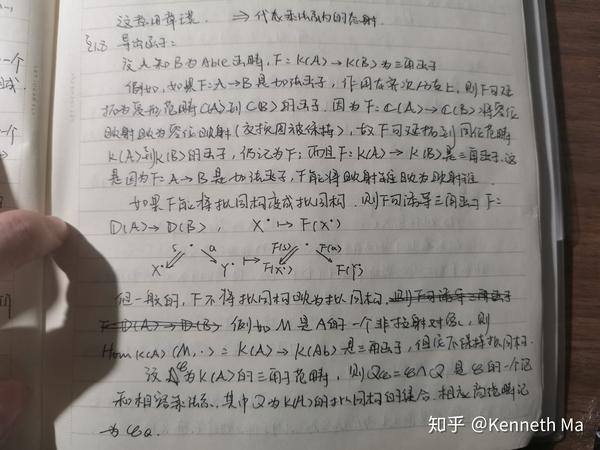 ⇒ 代表乘法系内的态射.
§1.8 导出函子:
设A和B为Abel范畴, F: K(A)→K(B)为三角函子
例如, 如果F: A→B是加法函子, 作用在各次分支上, 则F可延
拓为复形范畴C(A)到C(B)的函子. 因为F: C(A)→C(B)将零伦
映射映为零伦映射(交换图被保持), 故F可延拓到同伦范畴
K(A)到K(B)的函子, 仍记为F; 而且F: K(A)→K(B)是三角函子. 这
是因为F: A→B是加法函子, F能将映射锥映为映射锥.
如果F能将拟同构变成拟同构. 则F可诱导三角函子F:
D(A)→D(B), X˙ ↦ F(X˙)
s a ↦ F(s) F(a)
X˙ Y˙ F(X˙) F(Y˙)
但一般的, F不将拟同构映为拟同构. 则F可诱导三角函子
F: D(A)→D(B) 例如M是A的一个非投射对象, 则
Hom K(A) (M, ·) = K(A)→K(Ab)是三角函子, 但往往不保持拟同构.
设φ为K(A)的三角子范畴, 则Qφ=φ∩Q是φ的一个饱
和相容乘法系, 其中Q为K(A)的拟同构的集合. 相应商范畴记
为φQ.
知乎 @Kenneth Ma